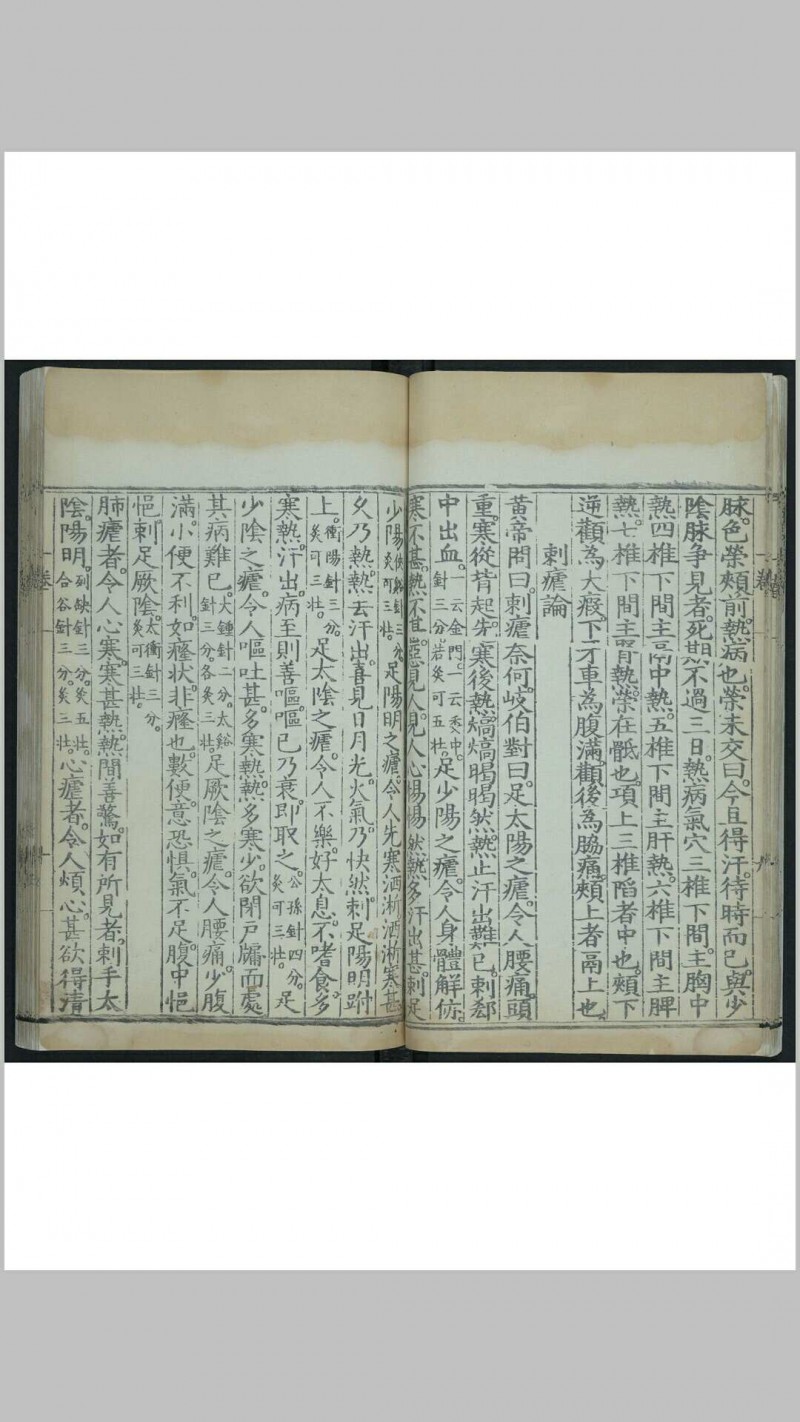 脉。色榮頰前。熱病也。榮未交曰。今且得汗。待時而已。與少
陰脉争見者。死期不過三日。熱病氣穴三椎下間。主胸中
熱四椎下間主鬲中熱。五椎下間主肝熱。六椎下間主脾
熱。七椎下間主腎熱。榮在骶也。項上三椎陷者中也。頰下
逆顴為大瘕。下牙車為腹滿。顴後為脇痛。頰上者鬲上也
刺瘧論
黄帝問曰。刺瘧奈何。岐伯對曰。足太陽之瘧。令人腰痛。頭
重。寒從背起。先寒後熱。熇熇暍暍然。熱止汗出。難已。刺郄
中出血。一云金門。一云委中。針三分。若灸可五壯。足少陽之瘧。令人身體解㑊。
寒不甚。熱不甚。惡見人。見人心惕惕然。熱多汗出甚。刺足
少陽俠谿針三分灸可三壯。足陽明之瘧。令人先寒洒淅。洒淅寒甚
久乃熱。熱去汗出。喜見日月光。火氣乃快然。刺足陽明跗
上。衝陽針三分。灸可三壯。足太陰之瘧。令人不樂。好太息。不嗜食。多
寒熱。汗出。病至則善嘔。嘔已乃衰。即取之。公孫針四分。灸可三壯。足
少陰之瘧。令人嘔吐甚。多寒熱。熱多寒少。欲閉戶牖而處
其病難已。大鍾針二分。太谿針三分。各灸三壯。足厥陰之瘧。令人腰痛。少腹
滿。小便不利。如癃狀。非癃也。數便。意恐惧。氣不足。腹中悒
悒刺足厥陰。太衝針三分。灸可三壯。
肺瘧者。令人心寒。寒甚熱。熱間善驚。如有所見者。刺手太
陰。陽明。列缺針三分。灸五壯。合谷針三分。灸三壯。心瘧者。令人煩心。甚欲得清
卷